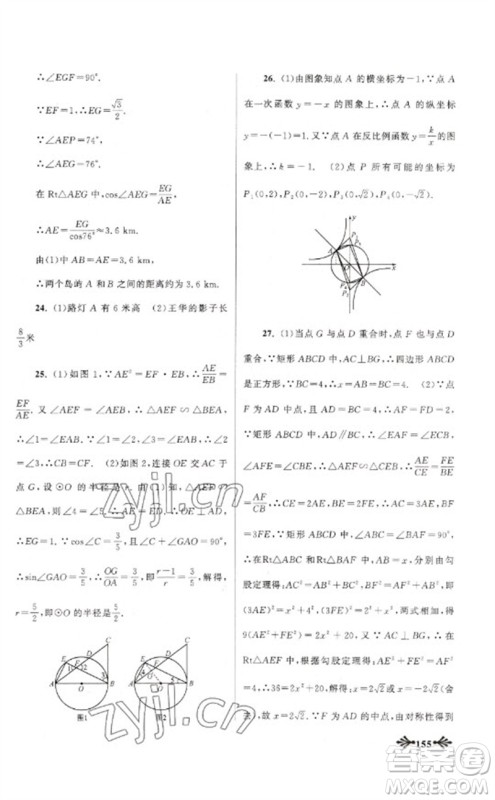 ∴∠EGF=90°.
∵EF=1,∴EG=√3/2.
∵∠AEP=74°,
∴∠AEG=76°.
在Rt△AEG中,cos∠AEG=EG/AE,
∴AE=EG/cos76°≈3.6 km.
由(1)中AB=AE=3.6 km.
∴两个岛的A和B之间的距离约为3.6 km.
24. (1)路灯A有6米高 (2)王华的影子长
8/3米
25. (1)如图1,∵AE²=EF·EB,∴AE/EB=
EF/AE. ∵∠AEF=∠AEB,∴△AEF∽△BEA,
∴∠1=∠EAB. ∵∠1=∠2,∠3=∠EAB,∴∠2=
∠3,∴CB=CF. (2)如图2,连接OE交AC于
点G,设⊙O的半径是r.
BEA,
∴EG=1. ∵cos∠C=3/5,∴∠C+∠GAO=90°,
∴sin∠GAO=3/5,∴OG/OA=3/5,即r-1/r=3/5,解得,
r=5/2,即⊙O的半径是5/2.
图1 图2
26. (1)由图象知点A的横坐标为-1,∵点A
在一次函数y=-x的图象上,∴点A的纵坐标
为-(-1)=1. 又∵点A在反比例函数y=k/x的图
象上,∴k=-1. (2)点P所有可能的坐标为
P₁(0,2),P₂(0,-2),P₃(0,√2),P₄(0,-√2).
27. (1)当点G与点D重合时,点F与点D重
合,∵矩形ABCD中,AC⊥BG,∴四边形ABCD
是正方形,∵BC=4,∴x=AB=BC=4. (2)∵
点F为AD中点,且AD=4,∴AF=½AD=2. ∵
矩形ABCD中,AD∥BC,∴∠EAF=∠ECB,
∵∠AEF=∠CEB,∴△AEF∽△CEB,∴AE/CE=FE/BE=
AF/CB=2/4=1/2,∴CE=2AE,BE=2FE,∴AC=3AE,
BF=3FE,∵矩形ABCD中,∠ABC=∠BAF=90°,
∴在Rt△ABC和Rt△BAF中,由勾
股定理得:AC²=AB²+BC²,BF²=AF²+AB²,
即(3AE)²=x²+4²,(3FE)²=2²+x²,两式相加,得
9(AE²+FE²)=2x²+20,又∵AC⊥BG,∴在
Rt△AEF中,根据勾股定理得:AE²+FE²=AF²=
4,∴36=2x²+20,解得:x=2√2或x=-2√2(舍
去),故x=2√2,由F是AD的中点,由对称性得到
155
zyjl.cn
答案圈